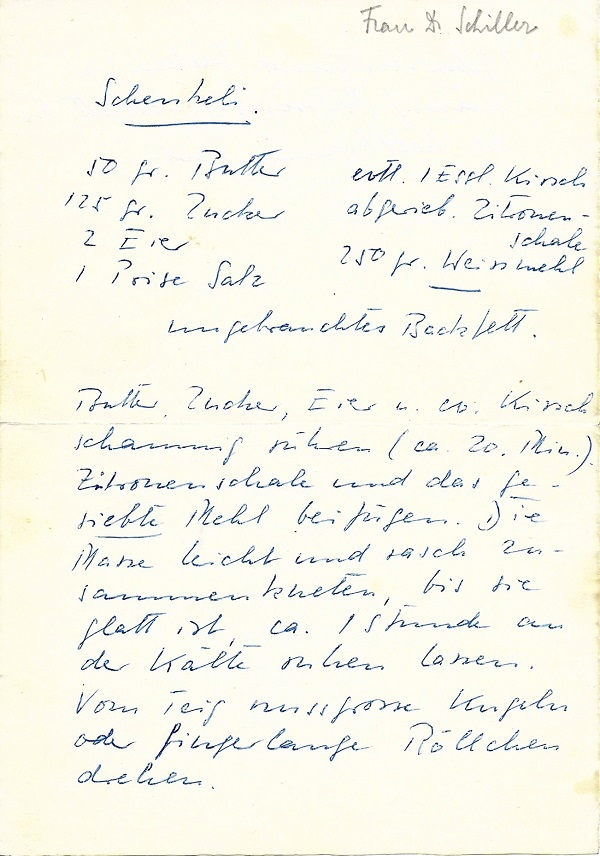 Frau Dr. Schiller
Schenkeli.
50 gr. Butter
125 gr. Zucker
2 Eier
1 Prise Salz
evtl. 1 Essl. Kirsch
abgerieb. Zitronen-
schale
250 gr. Weissmehl
ungebrauchtes Backfett.
Butter, Zucker, Eier u. ev. Kirsch
schaumig rühren (ca. 20. Min.).
Zitronenschale und das ge-
siebte Mehl beifügen. Die
Masse leicht und rasch zu-
sammenkneten, bis sie
glatt ist, ca. 1 Stunde an
der Kälte ruhen lassen.
Vom Teig nussgrosse Kugeln
oder fingerlange Röllchen
drehen.